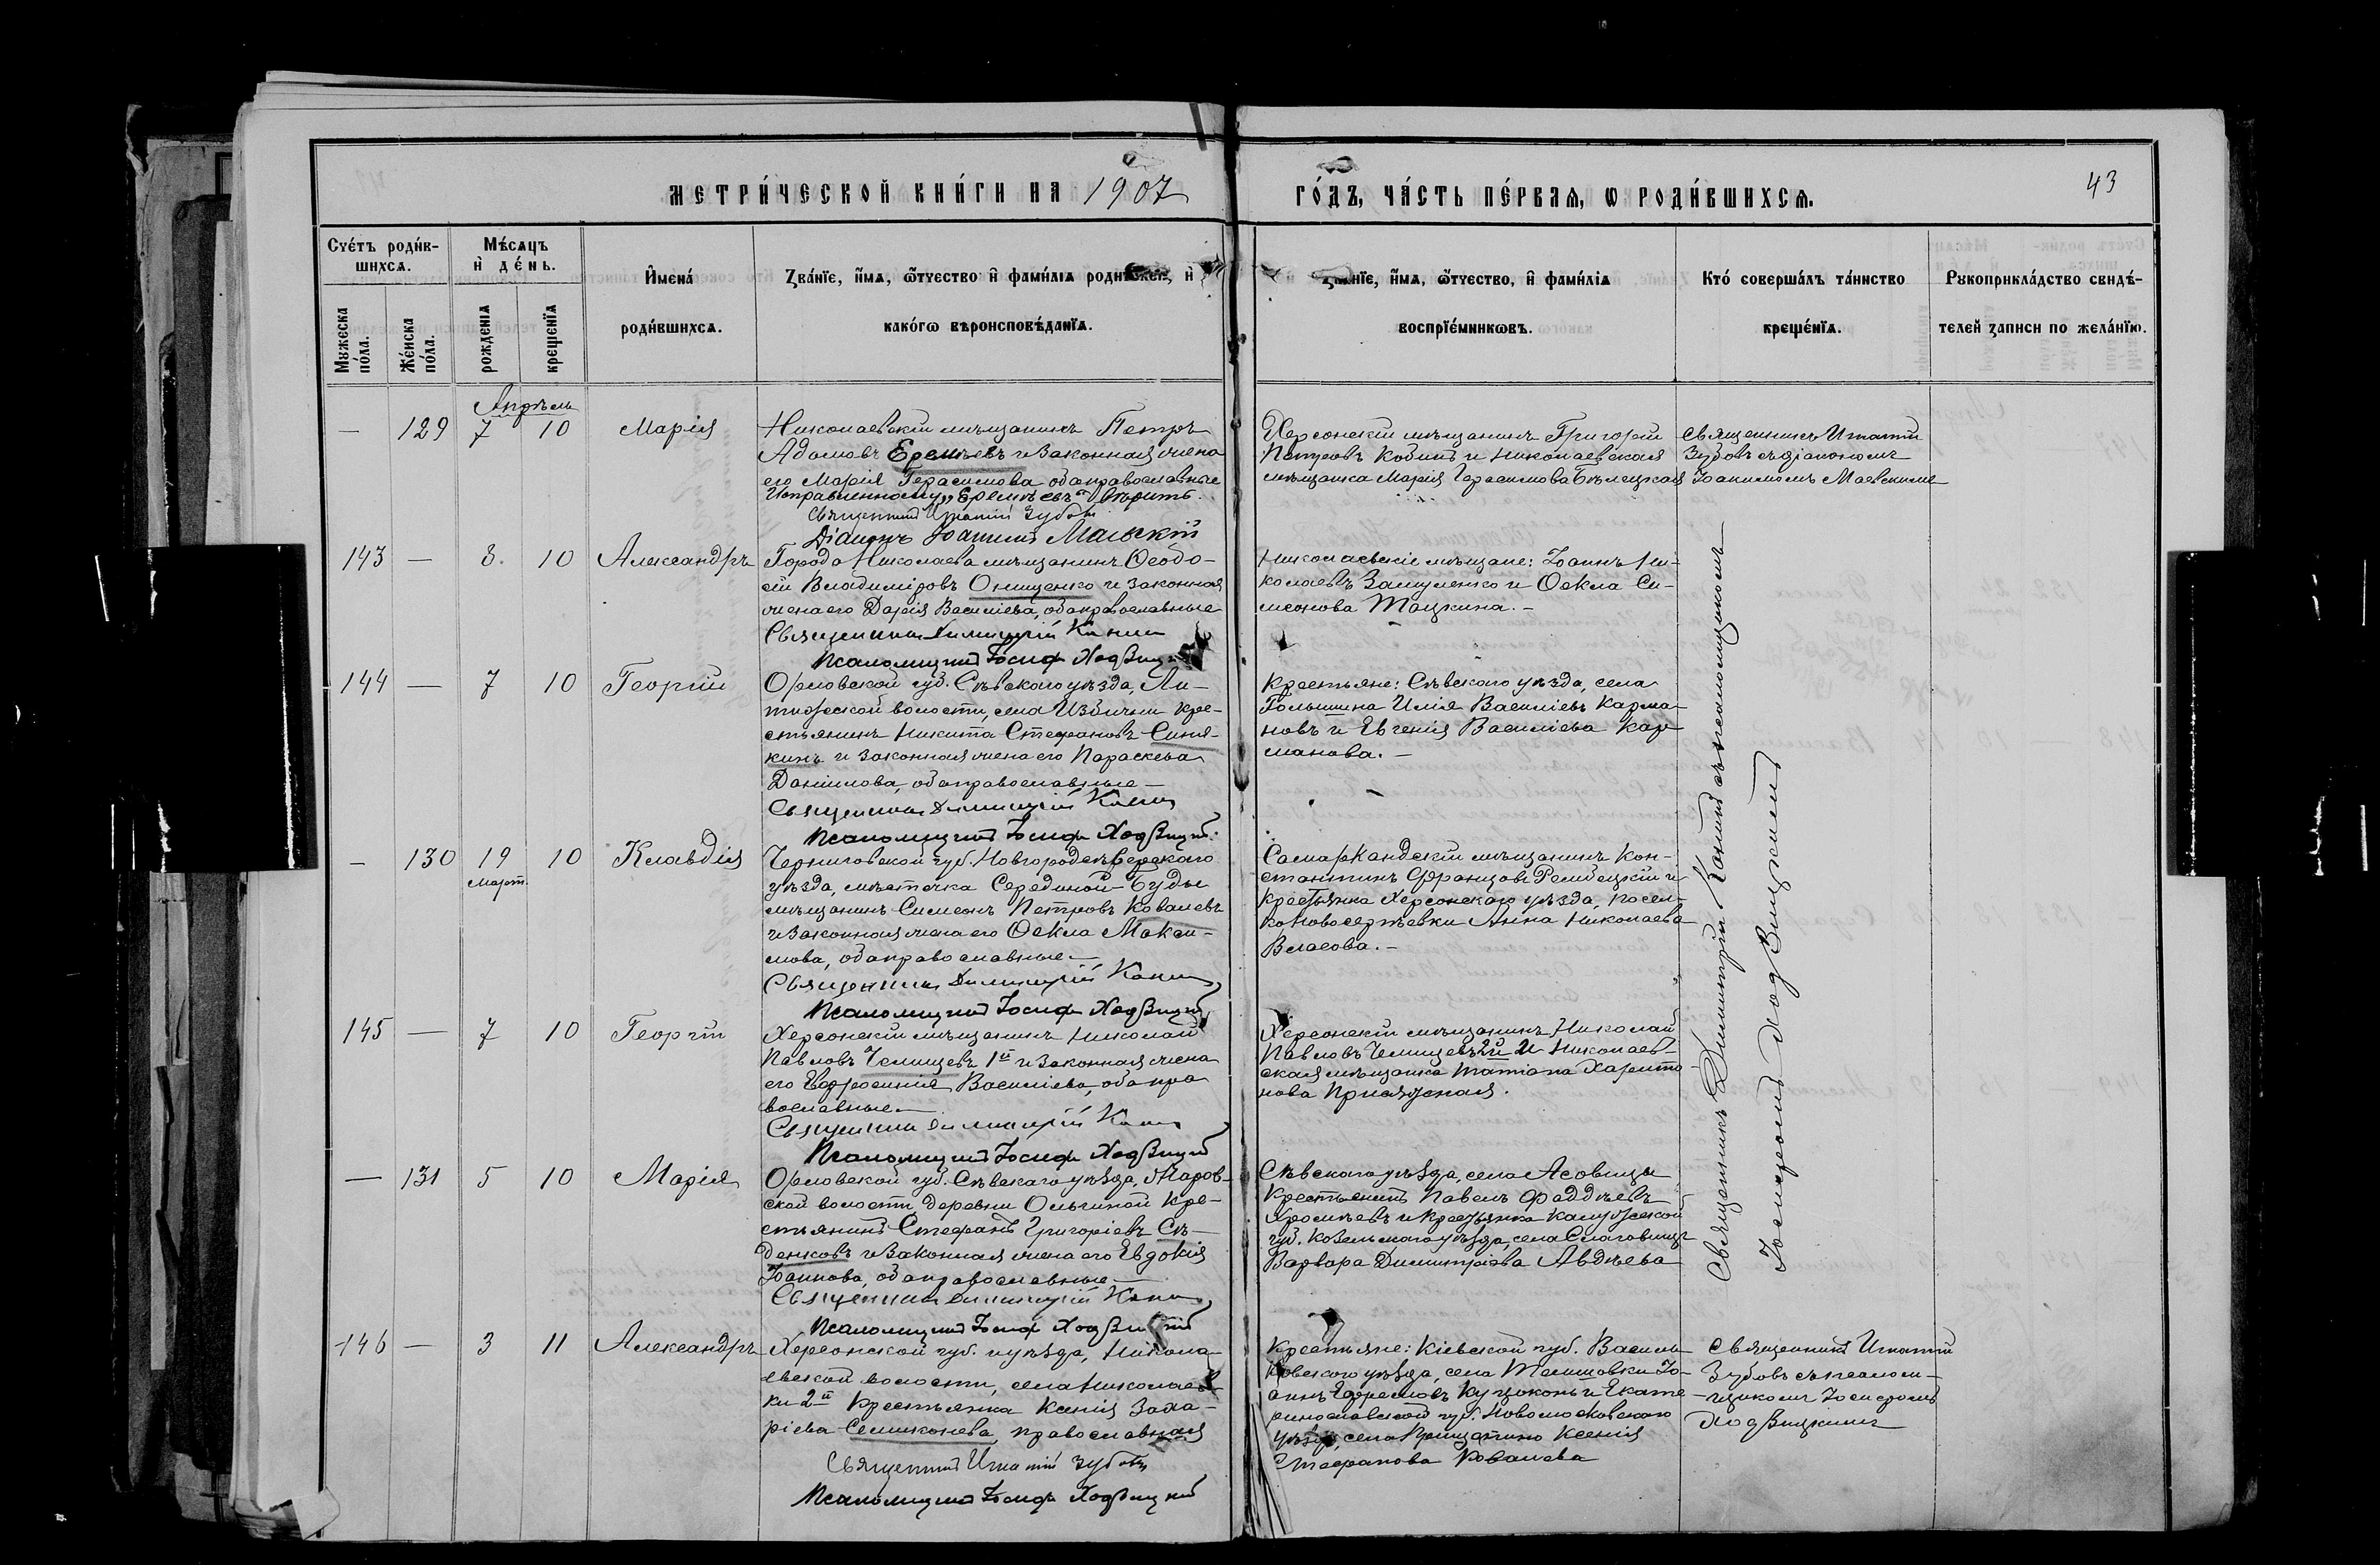 МЕТРИ́ЧЕСКОЙ КНИ́ГИ НА 1907
ГО́ДЪ, ЧА́СТЬ ПЕ́РВАѦ, Ѡ РОДИ́ВШИХСѦ.
43
Сче́тъ роди́в-
шихсѧ.
Мужеска по́ла.
Же́нска по́ла.
Мѣ́сѧцъ
и҆ де́нь.
рожденїѧ
крещенїѧ
И҆мена́
роди́вшихсѧ.
Ꙁва́нїе, и҆́мѧ, ѻ҆́тчество и҆ фами́лїѧ родителей, и҆
како́гѡ вѣроисповѣ́данїѧ.
Ꙁва́нїе, и҆́мѧ, ѻ҆́тчество, и҆ фами́лїѧ
воспрїе́мникѡвъ.
Кто́ соверша́лъ та́инство
креще́нїѧ.
Рукоприкла́дство свидѣ́-
телей ꙁаписи по жела́нїю.
Апрѣль
— 129 7 10 Марія
Николаевскій мѣщанинъ Петръ
Адамовъ Еремѣевъ и законная жена
его Марія Герасимова, оба православные
Исправленному „Еремѣевъ" вѣрить.
Священникъ Игнатій Зубовъ
Діаконъ Іоакимъ Маевскій
Херсонскій мѣщанинъ Григорій
Петровъ и Николаевская
мѣщанка Марія Герасимова Бѣлецкая
Священникъ Игнатій
Зубовъ съ діакономъ
Іоакимомъ Маевскимъ
143 — 8. 10 Александръ
Города Николаева мѣщанинъ Ѳеодо-
сій Владиміровъ Онищенко и законная
жена его Дарія Василіева, оба православные
Священникъ Димитрій Канинъ
Псаломщикъ Іосифъ Ходзицкій
Николаевскіе мѣщане: Іоаннъ Ни-
колаевъ и Ѳекла Си-
меонова Тоцкина. —
Священникъ Димитрій Канинъ съ псаломщикомъ
Іосифомъ Ходзицкимъ
144 — 7 10 Георгій
Орловской губ. Сѣвскаго уѣзда,
волости, села Избични кре-
стьянинъ Никита Стефановъ Синя-
кинъ и законная жена его Параскева
Даніилова, оба православные —
Священникъ Димитрій Канинъ
Псаломщикъ Іосифъ Ходзицкій.
Крестьяне: Сѣвскаго уѣзда, села
Голышина Илія Василіевъ Карма-
новъ и Евгенія Василіева Кар-
манова. —
— 130 19 10 Клавдія
Март.
Черниговской губ. Новгородсѣверскаго
уѣзда, мѣстечка Серединой-Буды
мѣщанинъ Симеонъ Петровъ Ковалевъ
и законная жена его Ѳекла Макси-
мова, оба православные —
Священникъ Димитрій Канинъ
Псаломщикъ Іосифъ Ходзицкій
Самаркандскій мѣщанинъ Кон-
стантинъ Францовъ и
крестьянка Херсонскаго уѣзда, посел-
ка Новосергѣевки Анна Николаева
Власова. —
145 — 7 10 Георгій
Херсонскій мѣщанинъ Николай
Павловъ Челищевъ 1й и законная жена
его Евфросинія Василіева, оба пра
вославные —
Священникъ Димитрій Канинъ
Псаломщикъ Іосифъ Ходзицкій
Херсонскій мѣщанинъ Николай
Павловъ Челищевъ 2й и Николаев-
ская мѣщанка Татіана Харито-
нова
— 131 5 10 Марія
Орловской губ. Сѣвскаго уѣзда,
ской волости деревни Ольгиной кре-
стьянинъ Стефанъ Григоріевъ Сѣ-
денковъ и законная жена его Евдокія
Іоаннова, оба православные —
Священникъ Димитрій Канинъ
Псаломщикъ Іосифъ Ходзицкій
Сѣвскаго уѣзда, села Асовицы
крестьянинъ Павелъ Ѳаддѣевъ
и крестьянка Калужской
губ. Козельскаго уѣзда, села
Варвара Димитріева Авдѣева
146 — 3 11 Александръ
Херсонской губ. и уѣзда, Никола-
евской волости, села Николаев-
ки 2й крестьянка Ксенія Заха-
ріева Семиконева, православная
Священникъ Игнатій Зубовъ
Псаломщикъ Іосифъ Ходзицкій
Крестьяне: Кіевской губ. Василь-
ковскаго уѣзда, села Іо-
аннъ Ефремовъ и Екате-
ринославской губ. Новомосковскаго
уѣзда, села Ксенія
Стефанова Ковалева
Священникъ Игнатій
Зубовъ съ псалом-
щикомъ Іосифомъ
Ходзицкимъ